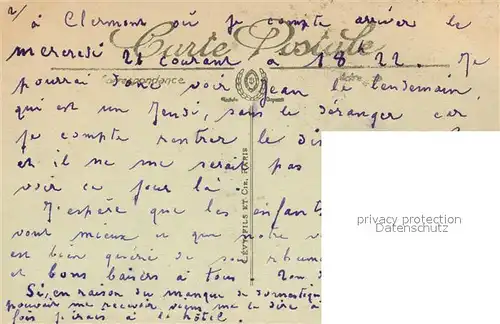 2/
à Clermont où je compte arriver le
mercredi 21 courant à 18h22. Je
Carte Postale
Correspondance
pourrai donc voir Jean le lendemain,
qui est un Jeudi, sans le déranger car
je compte rentrer le
et il ne me serait pas
voir ce jour là.
J'espère que les enfants
vont mieux et que notre
est bien guéri de son rhume
et bons baisers à tous
Si, en raison du manque de domestique
pouvais me recevoir
fois j'irais à l'hôtel.
LÉVY FILS ET Cie, PARIS
privacy protection
Datenschutz